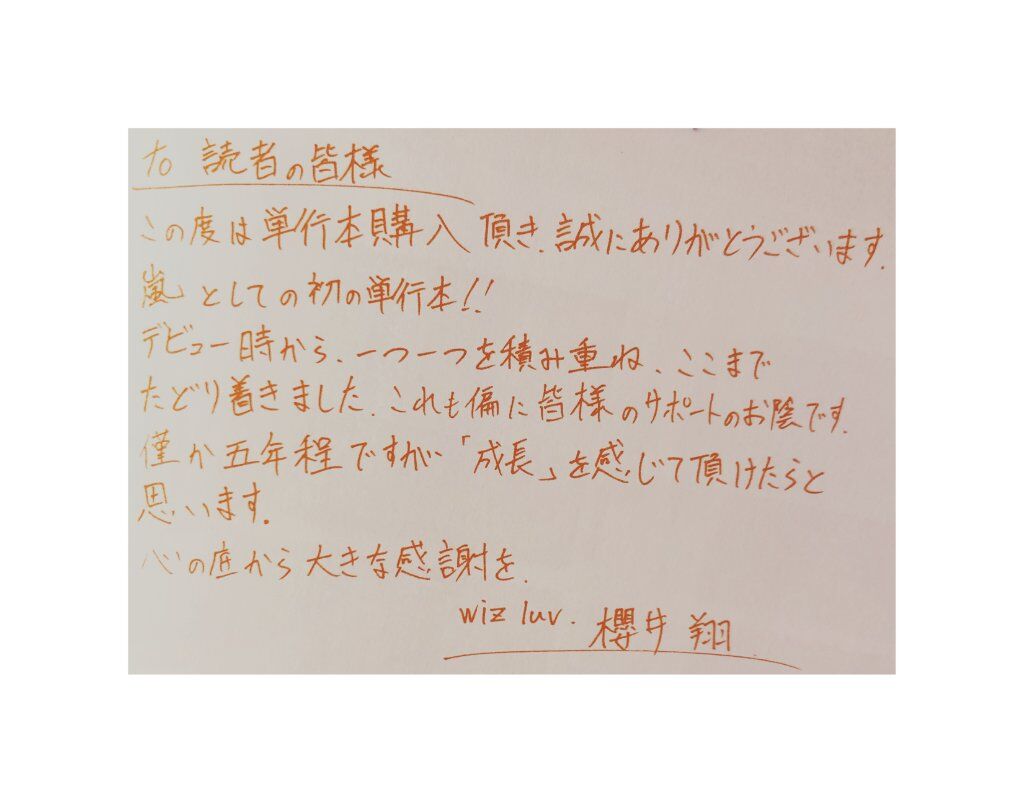 to 読者の皆様
この度は単行本購入頂き、誠にありがとうございます。
嵐としての初の単行本!!
デビュー時から、一つ一つを積み重ね、ここまで
たどり着きました。これも偏に皆様のサポートのお陰です。
僅か五年程ですが「成長」を感じて頂けたらと
思います。
心の底から大きな感謝を。
wiz luv. 櫻井 翔